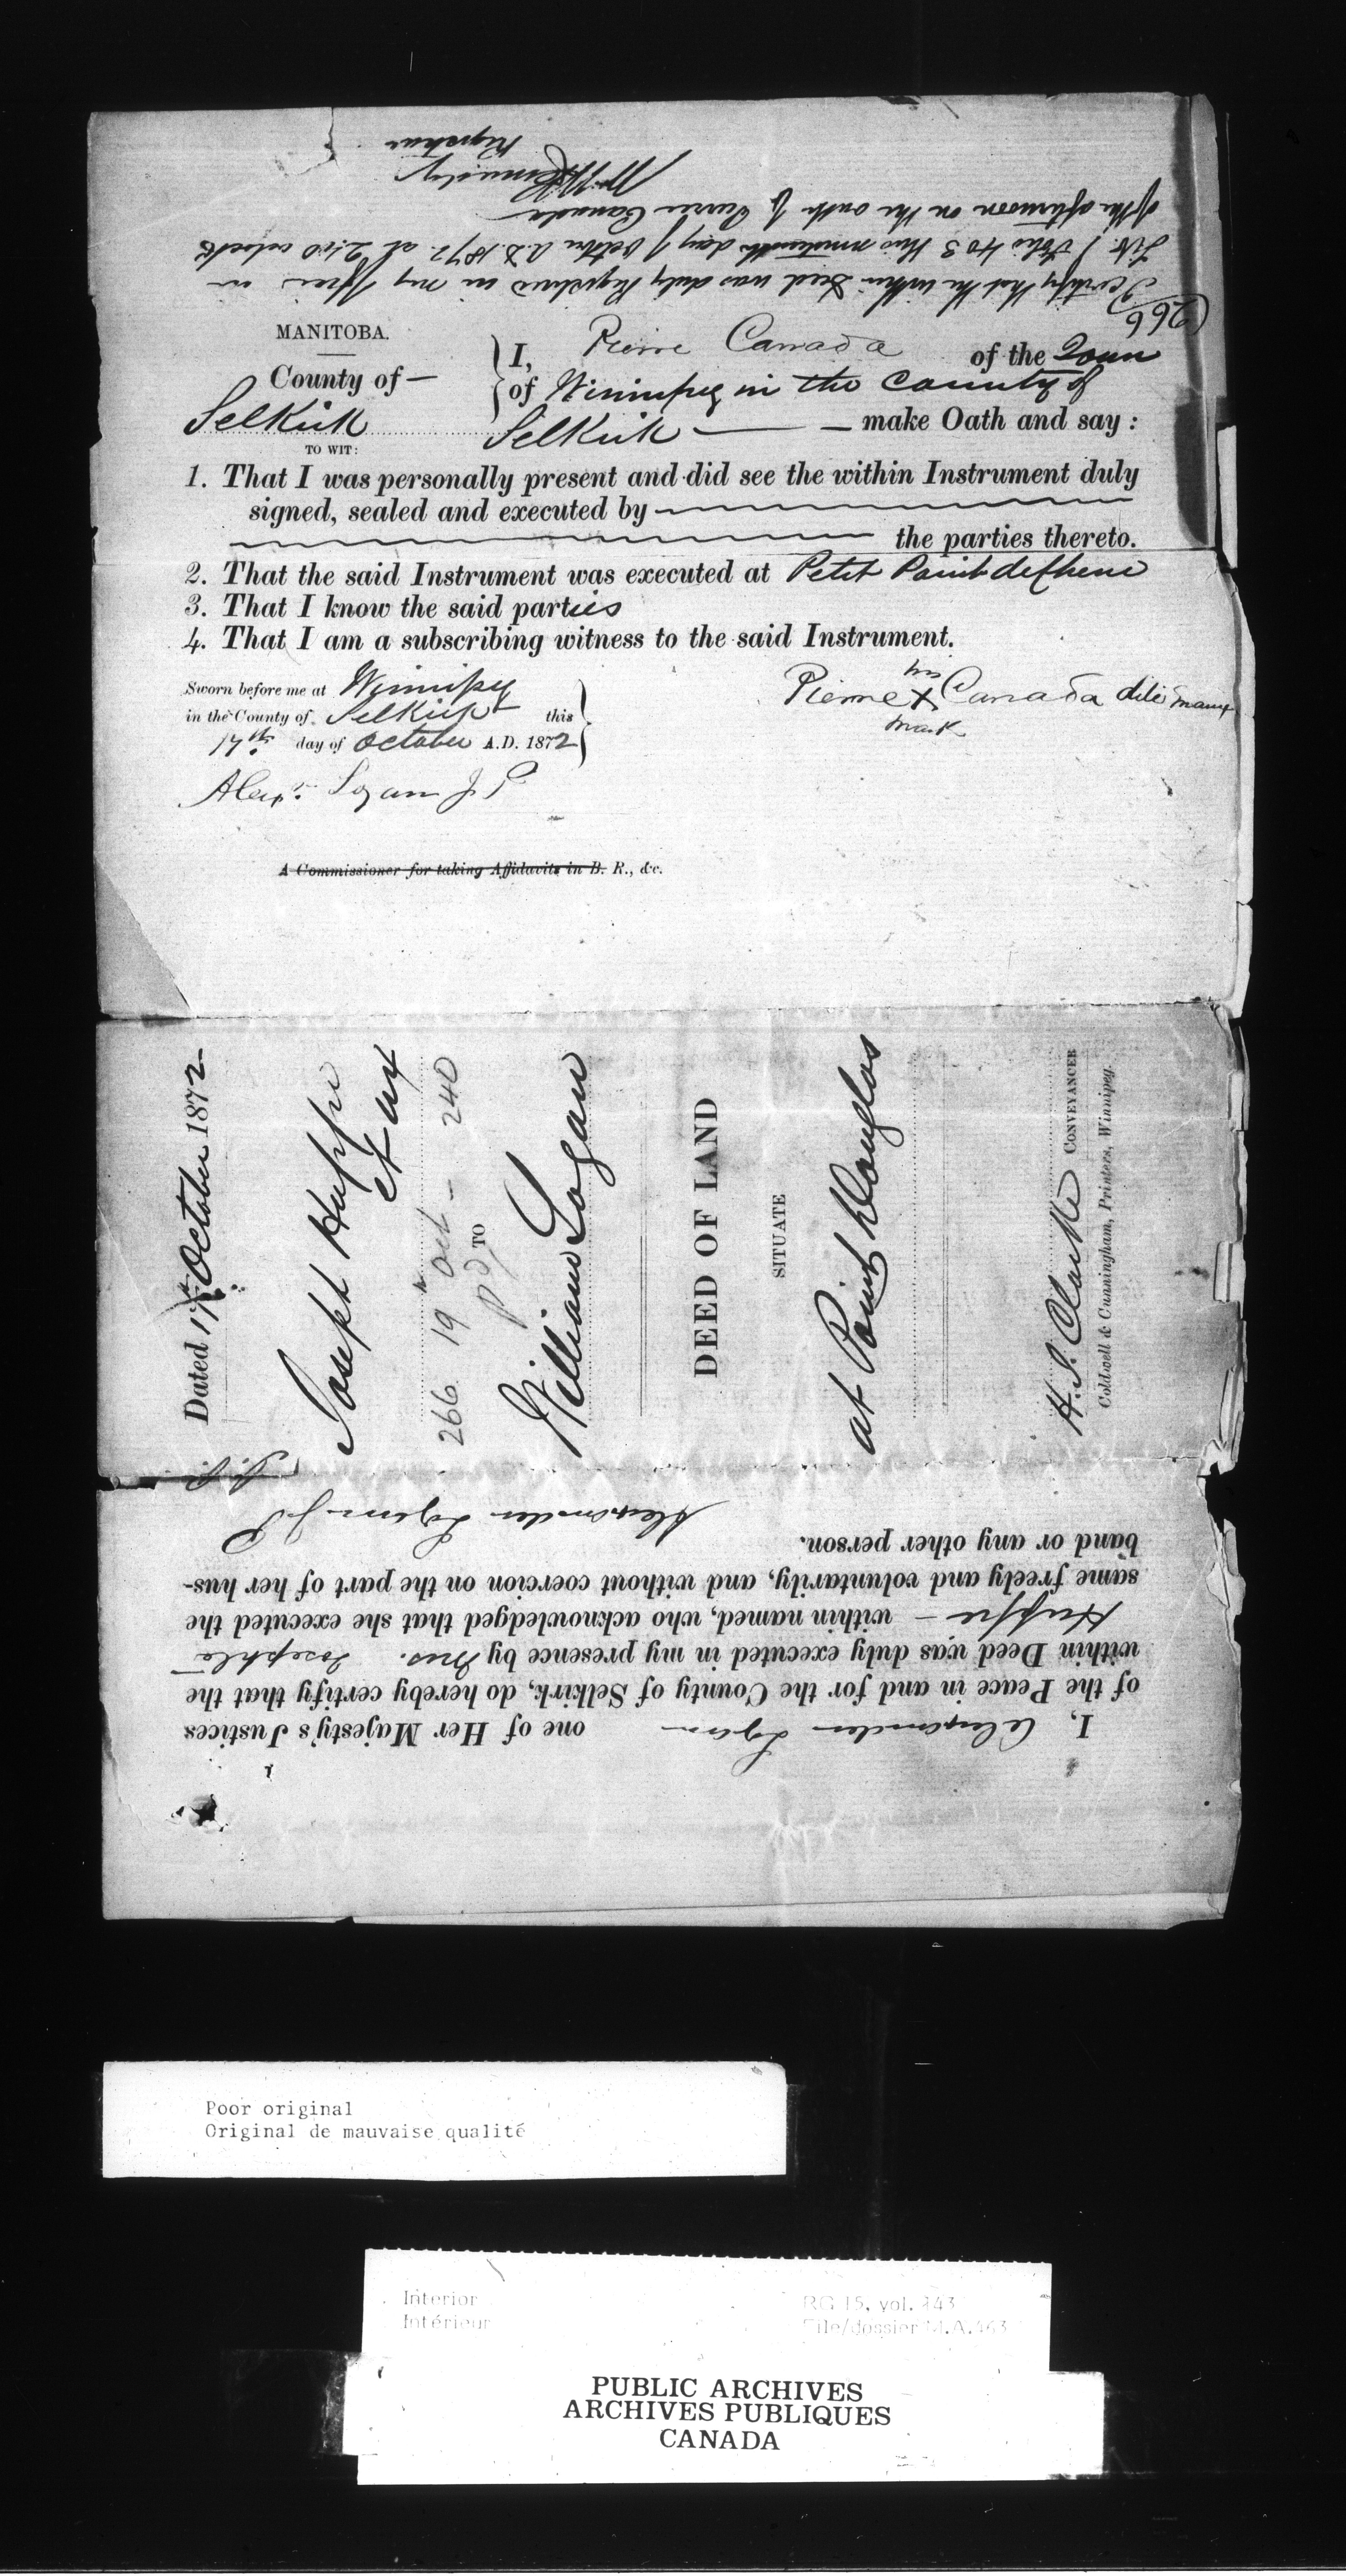 I certify that the within Deed was duly Registered in my office in
Lib. 1 Folio 403 this nineteenth day of October A.D. 1872 at 2:40 oclock
of the afternoon on the oath of Pierre Canada
Wm Kennedy
Registrar
266
MANITOBA.
County of —
Selkirk
TO WIT:
I, Pierre Canada of the Town
of Winnipeg in the County of
Selkirk — make Oath and say :
1. That I was personally present and did see the within Instrument duly
signed, sealed and executed by
the parties thereto.
2. That the said Instrument was executed at Petit Point de Chene
3. That I know the said parties
4. That I am a subscribing witness to the said Instrument.
his
Pierre X Canada
mark
Sworn before me at Winnipeg
in the County of Selkirk this
17th day of October A.D. 1872
Alexr. Logan J P
A Commissioner for taking Affidavits in B. R., &c.
Dated 17th October 1872
Joseph Huppe
et ux
266 19th Oct - 240
pd
TO
William Logan
DEED OF LAND
SITUATE
at Point Douglas
H. J. Clarke CONVEYANCER
Coldwell & Cunningham, Printers, Winnipeg.
I, Alexander Logan one of Her Majesty's Justices
of the Peace in and for the County of Selkirk, do hereby certify that the
within Deed was duly executed in my presence by Mrs. Josephte
Huppe — within named, who acknowledged that she executed the
same freely and voluntarily, and without coercion on the part of her hus-
band or any other person.
Alexander Logan J.P
J.P.
Poor original
Original de mauvaise qualité
Interior
Intérieur
RG 15, vol. 143
File/dossier M.A.463
PUBLIC ARCHIVES
ARCHIVES PUBLIQUES
CANADA